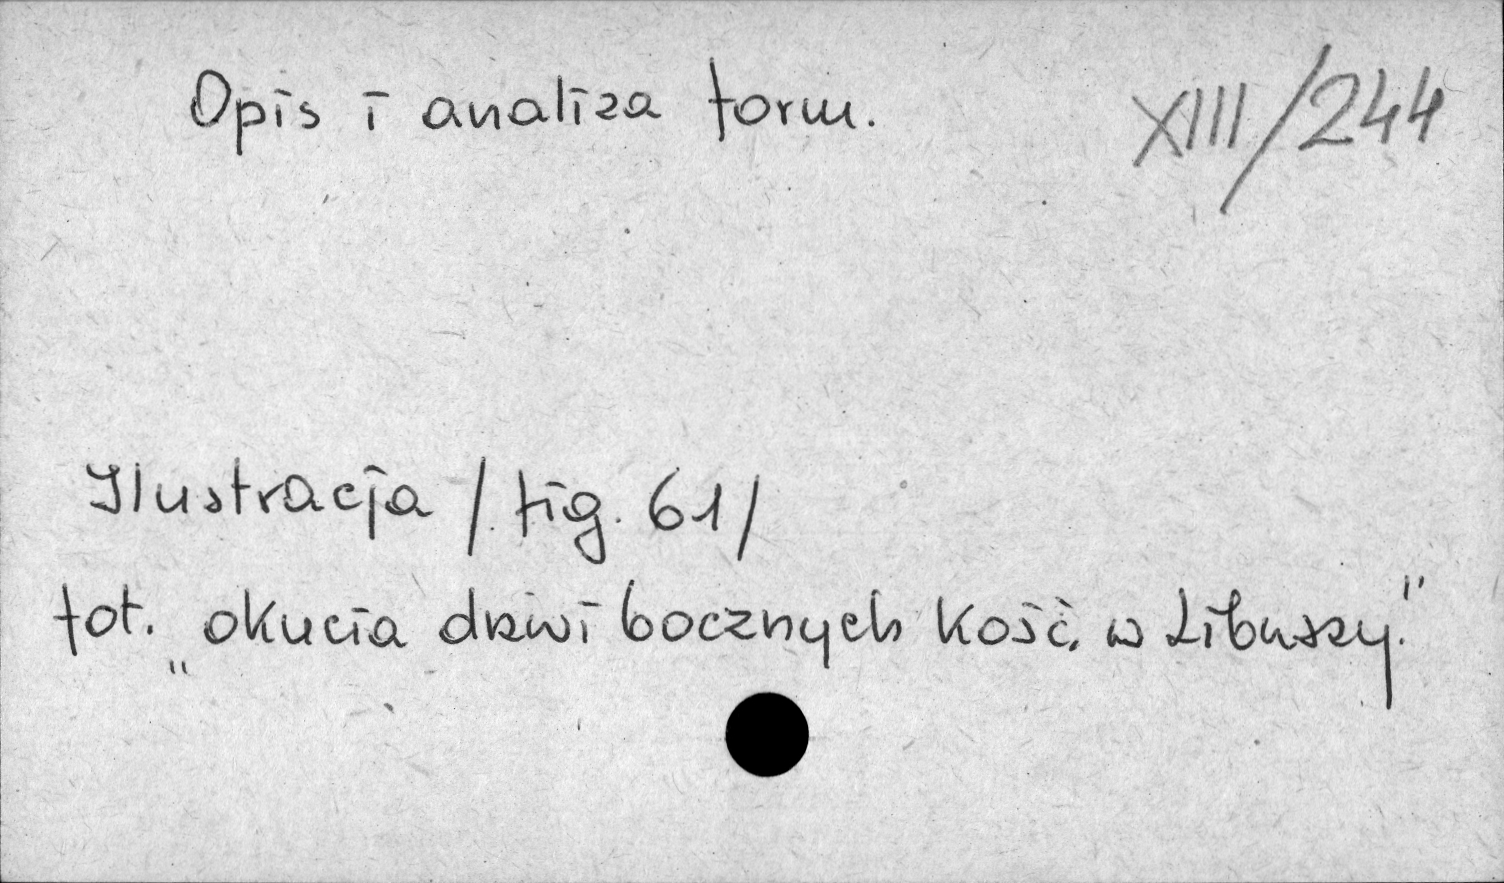 Opis i analiza form. XIII/244
Ilustracja /fig. 61/
fot. „okucia drzwi bocznych kość. w Libuszy."